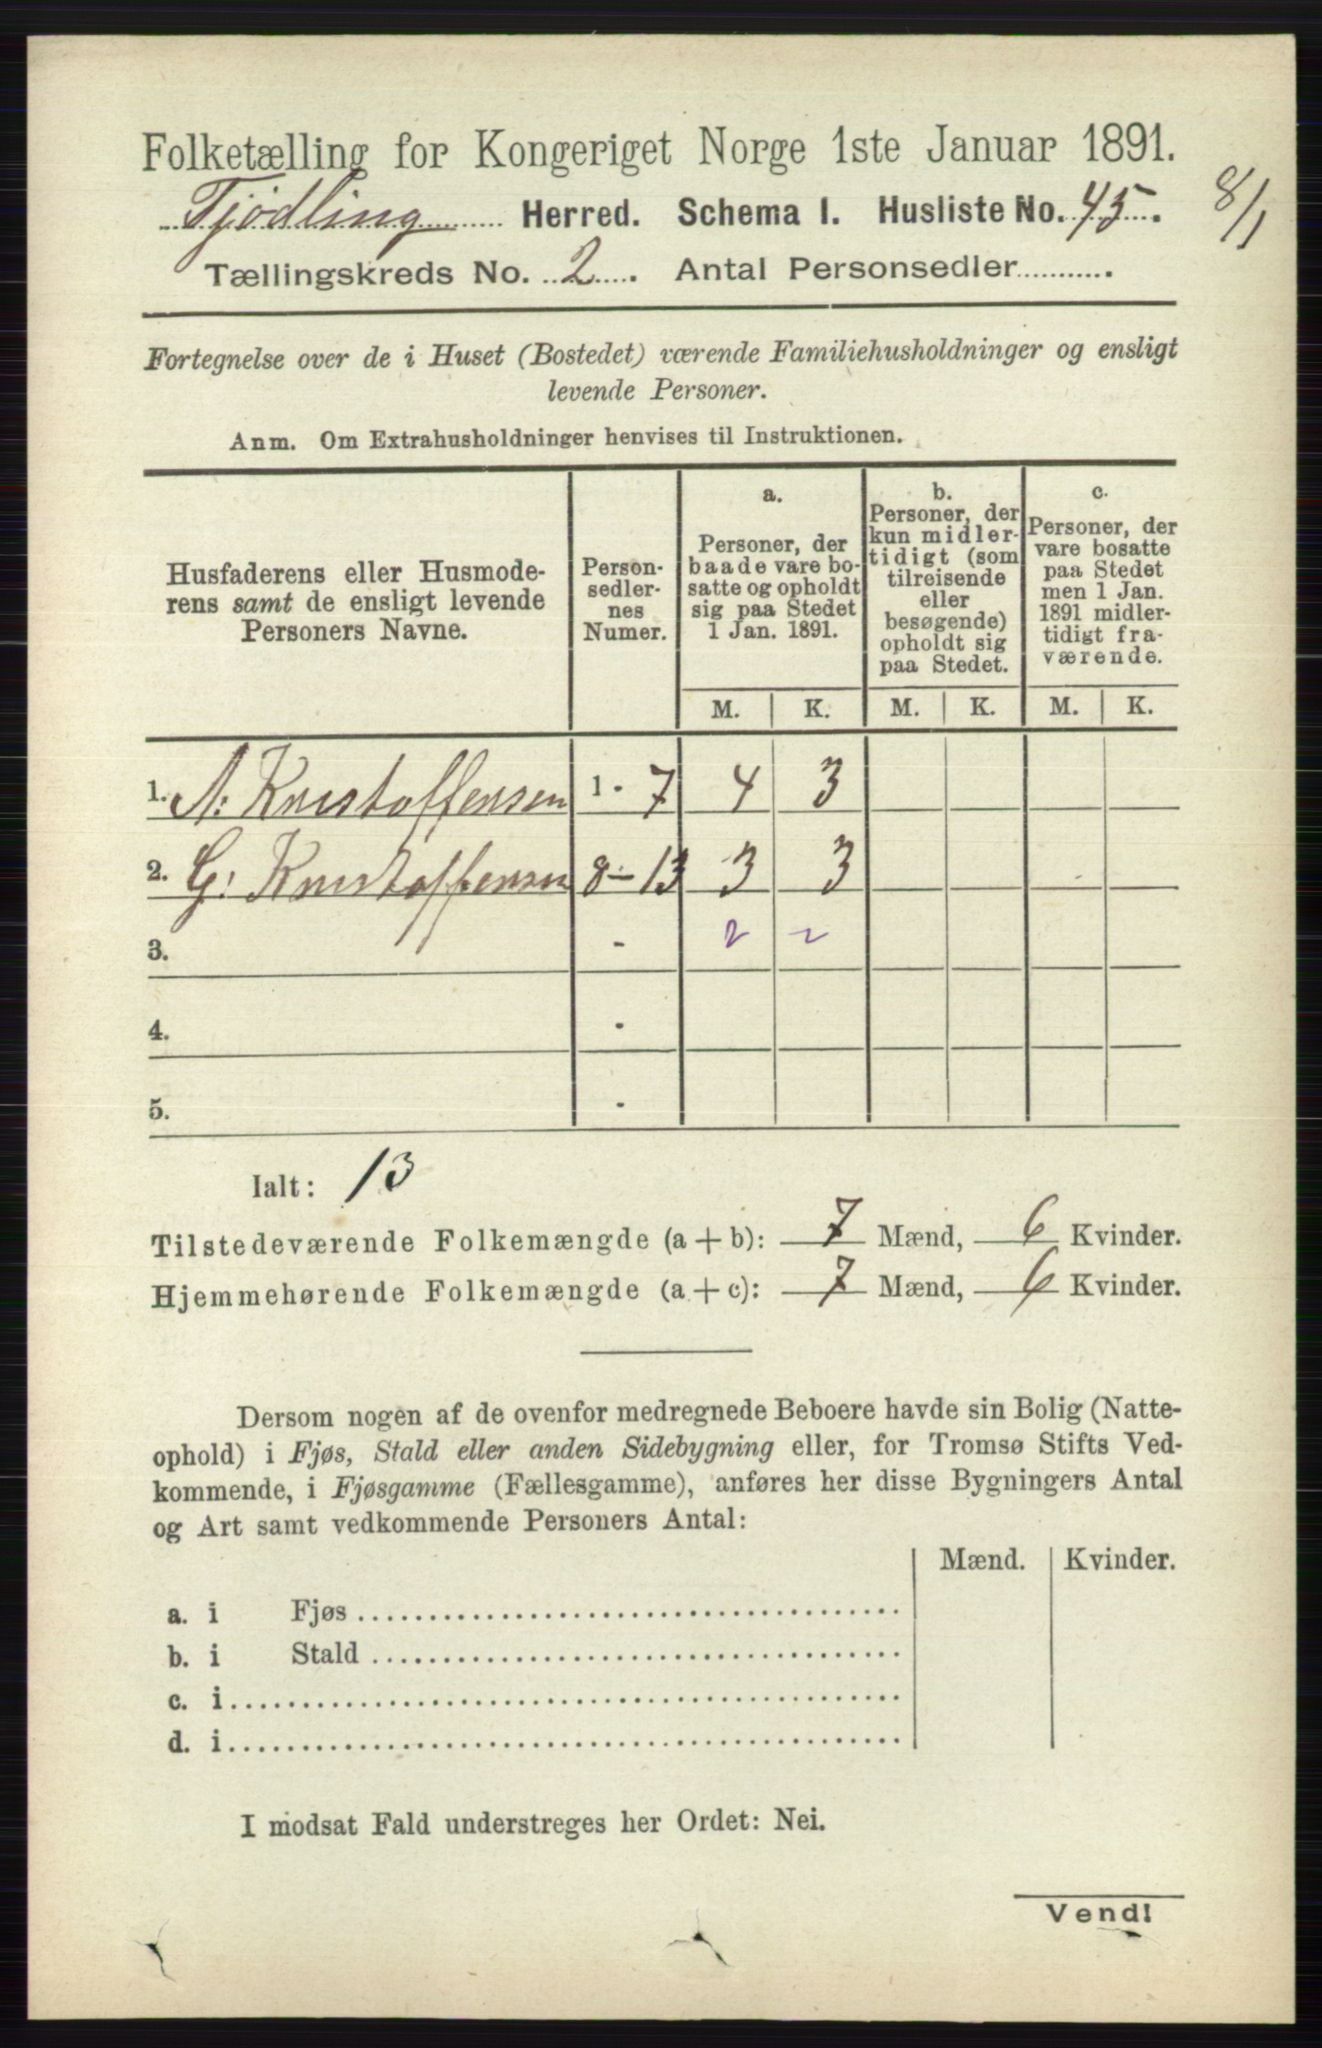 Folketælling for Kongeriget Norge 1ste Januar 1891.
Tjødling Herred. Schema I. Husliste No. 45. 8/1
Tællingskreds No. 2. Antal Personsedler...........
Fortegnelse over de i Huset (Bostedet) værende Familiehusholdninger og ensligt
levende Personer.
Anm. Om Extrahusholdninger henvises til Instruktionen.
Husfaderens eller Husmode-
rens samt de ensligt levende
Personers Navne.
Person-
sedler-
nes
Numer.
a.
Personer, der
baade vare bo-
satte og opholdt
sig paa Stedet
1 Jan. 1891.
b.
Personer, der
kun midler-
tidigt (som
tilreisende
eller
besøgende)
opholdt sig
paa Stedet.
c.
Personer, der
vare bosatte
paa Stedet
men 1 Jan.
1891 midler-
tidigt fra-
værende.
M. K. M. K. M. K.
1. A: Kristoffensen 1 - 7 4 3
2. G: Kristoffensen 8-13 3 3
3. - 2 2
4. -
5. -
Ialt: 13
Tilstedeværende Folkemængde (a + b): 7 Mænd, 6 Kvinder.
Hjemmehørende Folkemængde (a + c): 7 Mænd, 6 Kvinder.
Dersom nogen af de ovenfor medregnede Beboere havde sin Bolig (Natte-
ophold) i Fjøs, Stald eller anden Sidebygning eller, for Tromsø Stifts Ved-
kommende, i Fjøsgamme (Fællesgamme), anføres her disse Bygningers Antal
og Art samt vedkommende Personers Antal:
Mænd. Kvinder.
a. i Fjøs
b. i Stald
c. i
d. i
I modsat Fald understreges her Ordet: Nei.
Vend!